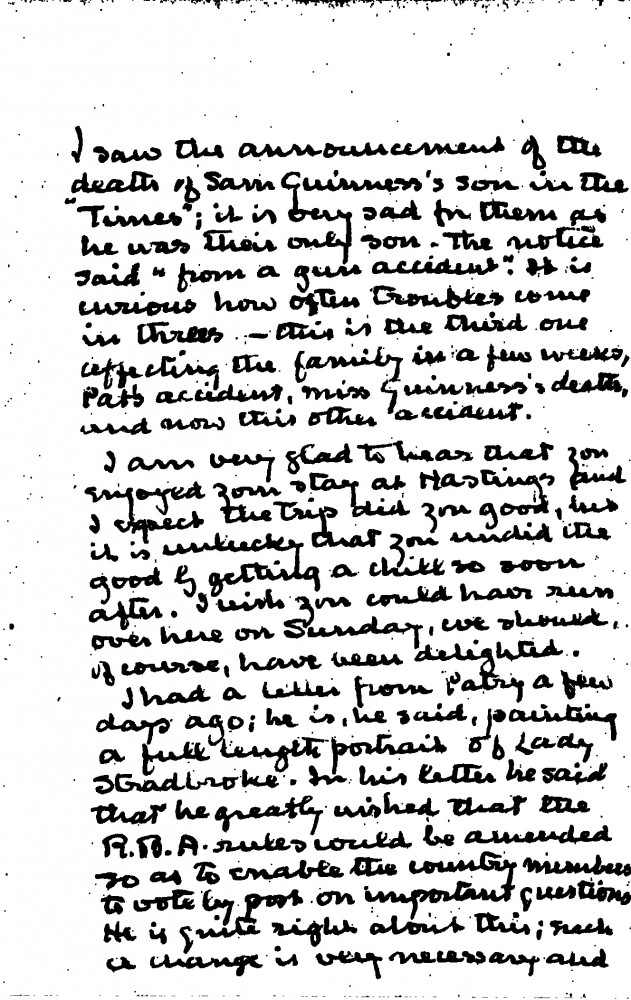 I saw the announcement of the
death of Sam Guinness's son in the
"Times"; it is very sad for them as
he was their only son. The notice
said "from a gun accident". It is
curious how often troubles come
in threes – this is the third one
affecting the family in a few weeks,
Pat's accident, Miss Guinness's death,
and now this other accident.
I am very glad to hear that you
enjoyed your stay at Hastings and
I expect the trip did you good, but
it is unlucky that you undid the
good by getting a chill so soon
after. I wish you could have run
over here on Sunday, we should,
of course, have been delighted.
I had a letter from Patry a few
days ago; he is, he said, painting
a full length portrait of Lady
Stradbroke. In his letter he said
that he greatly wished that the
R.B.A. rules could be amended
so as to enable the country members
to vote by post on important questions
He is quite right about this; such
a change is very necessary and